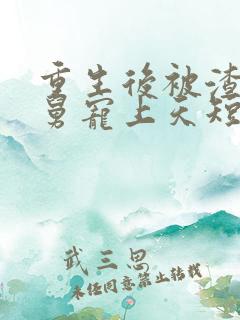 重生後被渣
舅寵上天短
武三思
未經同意禁止轉載